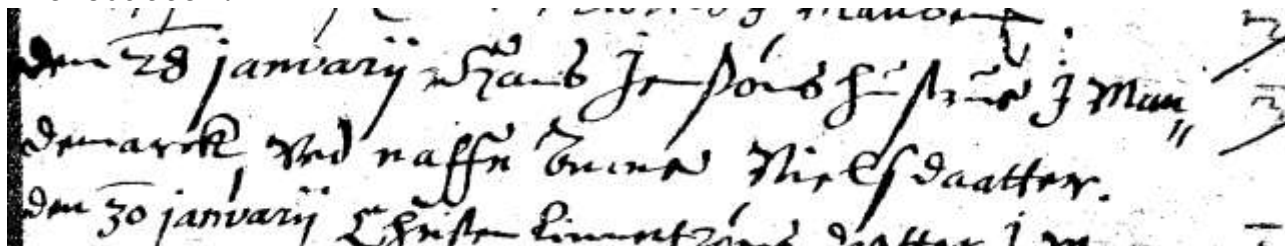 den 28 januarij Hans Jensøns hustrue J Mun„
demarck, ved naffn Anne Nielsdaatter.
den 30 januarij Christen datter J